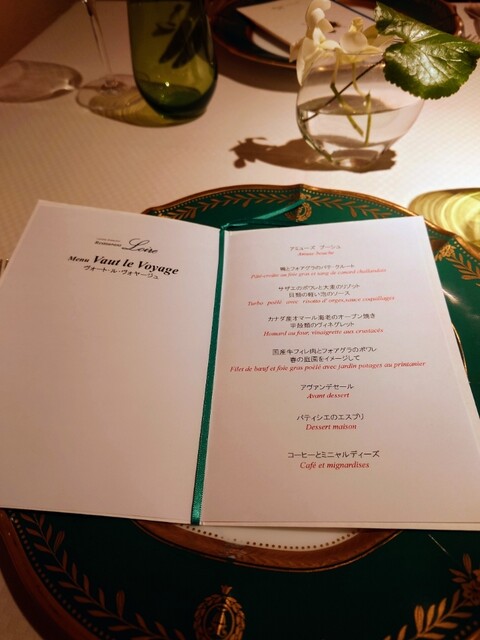 Restaurant Loire
Menu Vaut le Voyage
ヴォート・ル・ヴォヤージュ
アミューズ ブーシュ
Amuse bouche
鴨とフォアグラのパテ・クルート
Pâté croûte au foie gras et sang de canard challandais
サザエのポワレと大麦のリゾット
貝類の軽い泡のソース
Turbo poêlé avec risotto d'orges, sauce coquillages
カナダ産オマール海老のオーブン焼き
甲殻類のヴィネグレット
Homard au four, vinaigrette aux crustacés
国産牛フィレ肉とフォアグラのポワレ
春の庭園をイメージして
Filet de bœuf et foie gras poêlé avec jardin potager au printanier
アヴァンデセール
Avant dessert
パティシエのエスプリ
Dessert maison
コーヒーとミニャルディーズ
Café et mignardises